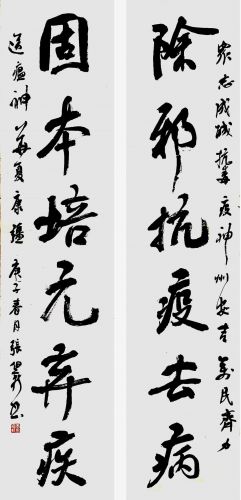 众志成城抗毒疫神州安吉万民齐力
除邪抗疫去病
固本培元弃疾
送瘟神华夏康
庚子春月张